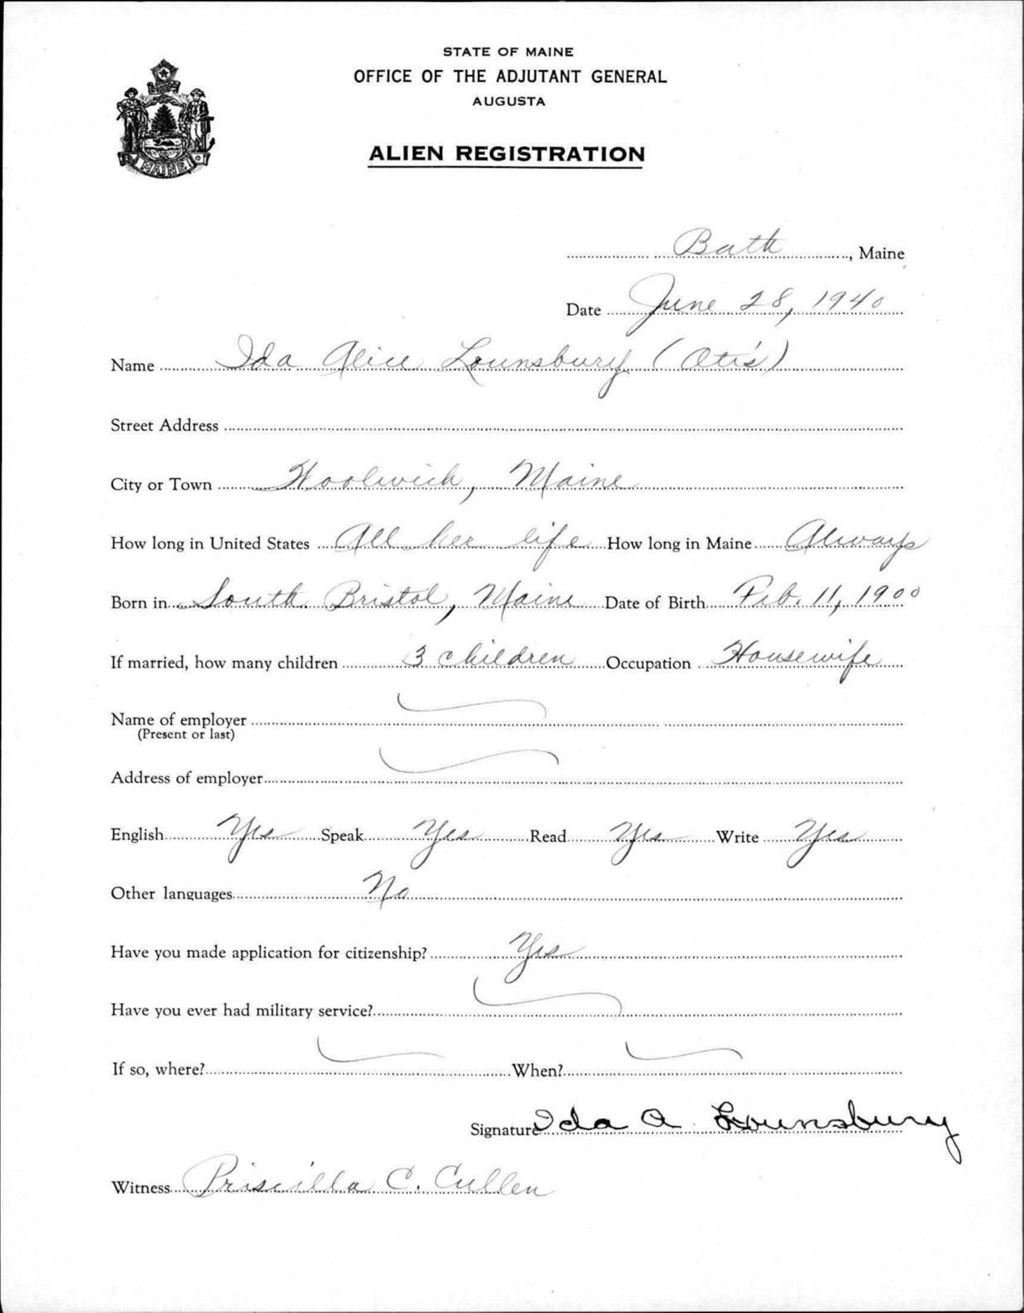 STATE OF MAINE
OFFICE OF THE ADJUTANT GENERAL
AUGUSTA
ALIEN REGISTRATION
MAINE
Bath, Maine
Date June 28, 1940
Name Ida Alice Lounsbury (Otis)
Street Address
City or Town Woolwich, Maine
How long in United States All her life How long in Maine Always
Born in South Bristol, Maine Date of Birth Feb. 11, 1900
If married, how many children 3 children Occupation Housewife
Name of employer
(Present or last)
Address of employer
English Yes Speak Yes Read Yes Write Yes
Other languages No
Have you made application for citizenship? Yes
Have you ever had military service?
If so, where? When?
Signature Ida A. Lounsbury
Witness Priscilla C. Cullen